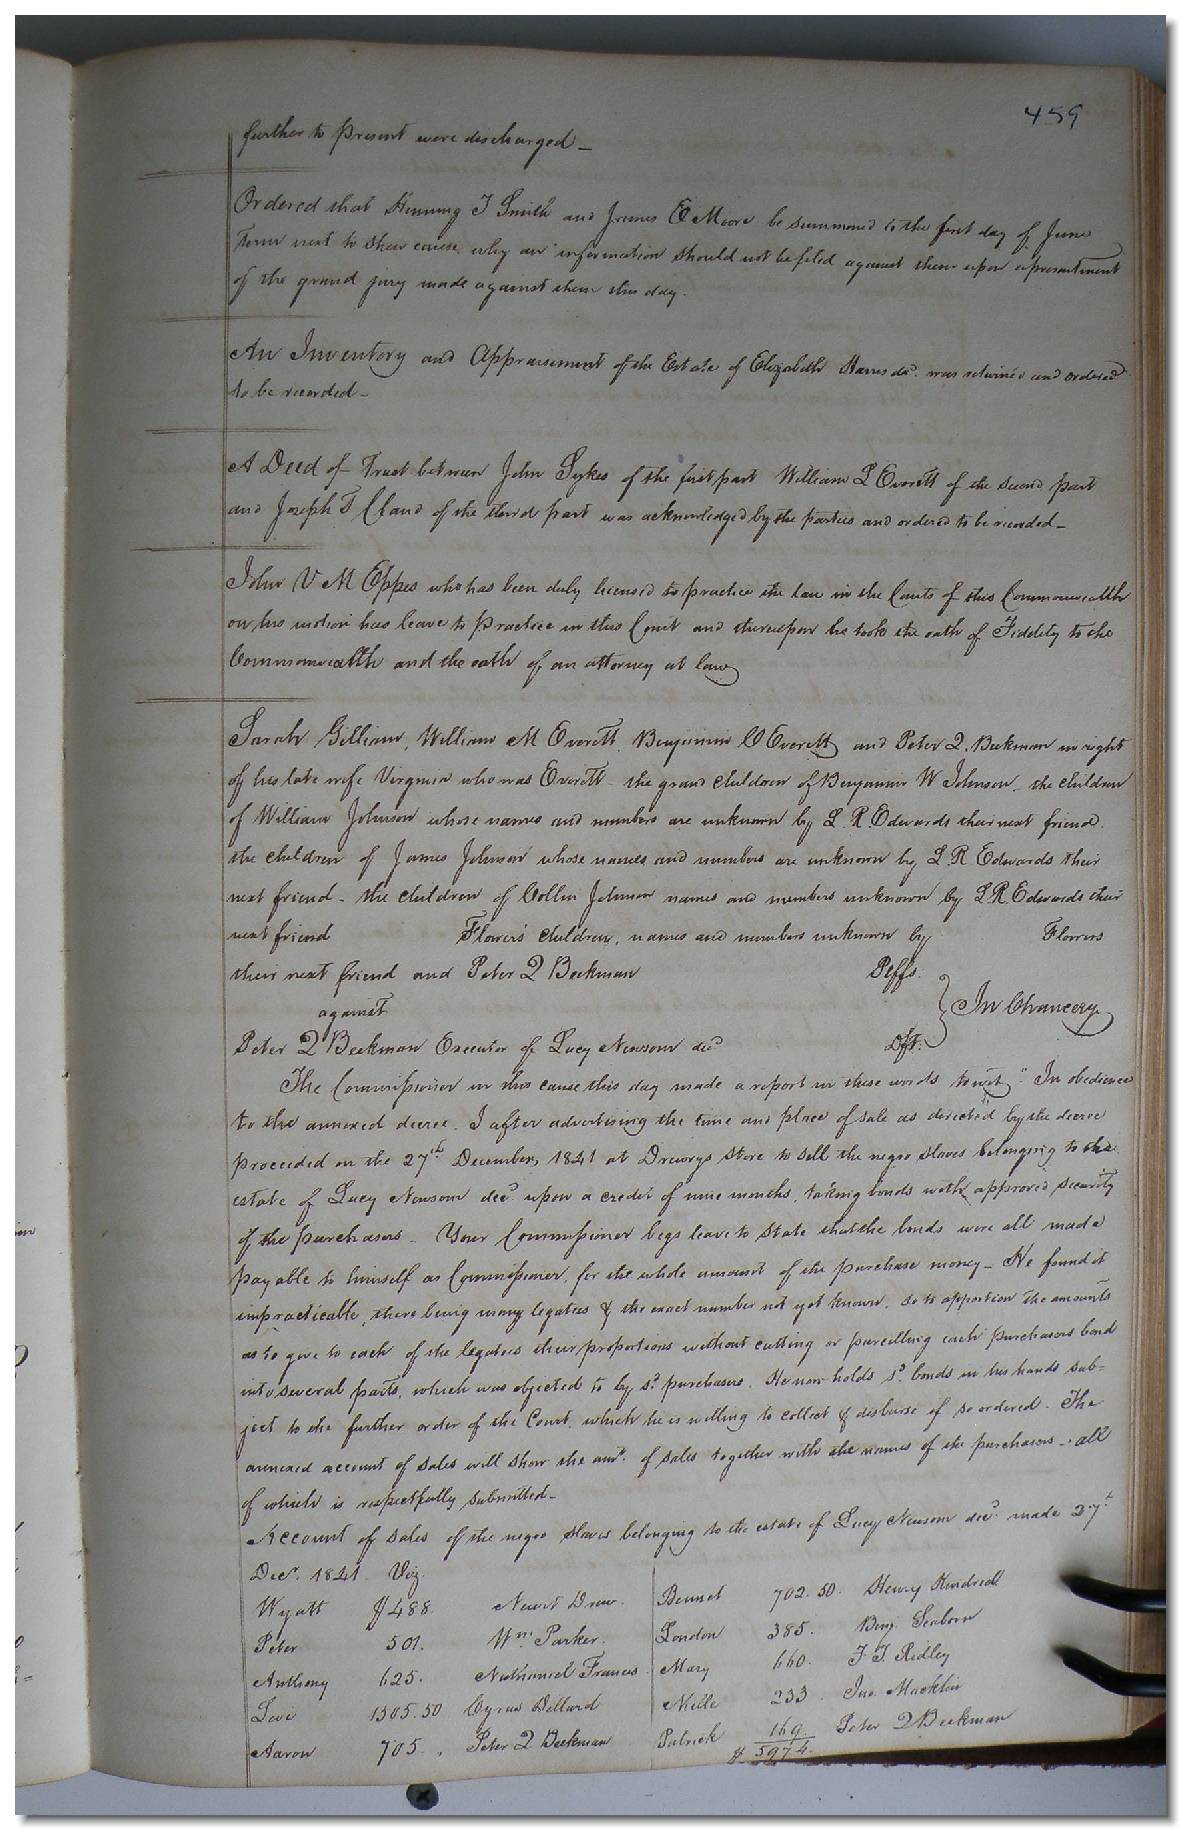 459
further to present were discharged _
Ordered that Henning T Smith and James E Moore be summoned to the first day of June
Term next to shew cause why an information should not be filed against them upon a presentment
of the grand jury made against them this day.
An Inventory and Appraisement of the Estate of Elizabeth Harris decd. was returned and ordered
to be recorded _
A Deed of Trust between John Sykes of the first part William L Everett of the second part
and Joseph T Claud of the third part was acknowledged by the parties and ordered to be recorded _
John V M Eppes who has been duly licensed to practice the law in the Courts of this Commonwealth
on his motion has leave to practice in this Court and thereupon he took the oath of Fidelity to the
Commonwealth and the oath of an attorney at law
Sarah Gilliam, William M Everett, Benjamin C Everett and Peter Q. Beekman in right
of his late wife Virginia who was Everett the grand children of Benjamin W Johnson. the children
of William Johnson whose names and numbers are unknown by L. R. Edwards their next friend.
the children of James Johnson whose names and numbers are unknown by L. R Edwards their
next friend _ the children of Collin Johnson names and numbers unknown by L R Edwards their
next friend Flowers children, names and numbers unknown by Flowers
their next friend and Peter Q Beekman Plffs.
against In Chancery
Peter Q Beekman Executor of Lucy Newsom decd Dft.
The Commissioner in this cause this day made a report in these words towit "In obedience
to the annexed decree. I after advertising the time and place of sale as directed by the decree
proceeded on the 27th December, 1841 at Drewrys Store to sell the negro slaves belonging to the
estate of Lucy Newsom decd upon a credit of nine months, taking bonds with approved security
of the purchasers _ Your Commissioner begs leave to state that the bonds were all made
payable to himself as Commissioner, for the whole amount of the purchase money _ He found it
impracticable, there being many legatees & the exact number not yet known, so to apportion the amounts
as to give to each of the legatees their proportions without cutting or parcelling each purchasers bond
into several parts, which was objected to by sd. purchasers. He now holds sd. bonds in his hands sub=
ject to the further order of the Court, which he is willing to collect & disburse if so ordered. The
annexed account of sales will show the amt. of sales together with the names of the purchasers _ all
of which is respectfully submitted _
Account of sales of the negro slaves belonging to the estate of Lucy Newsom decd made 27th
Decr. 1841 Viz.
Wyatt $488. Newit Drew. Bennet 702.50. Henry Kindred
Peter 501. Wm. Parker. London 385. Benj. Seaborn
Anthony 625. Nathaniel Francis Mary 660. F. T. Ridley
Levi 1505.50 Cyrus Dillard Mille 233. Jno. Macklin
Aaron 705. Peter Q Beekman Patrick 169. Peter Q Beekman
$ 5974.